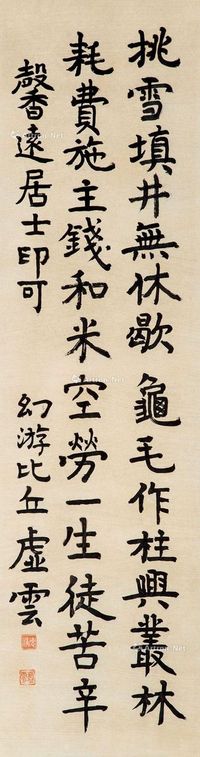 挑雪填井無休歇 龜毛作柱興叢林
耗費施主錢和米 空勞一生徒苦辛
馨香遠居士印可
幻游比丘虛雲